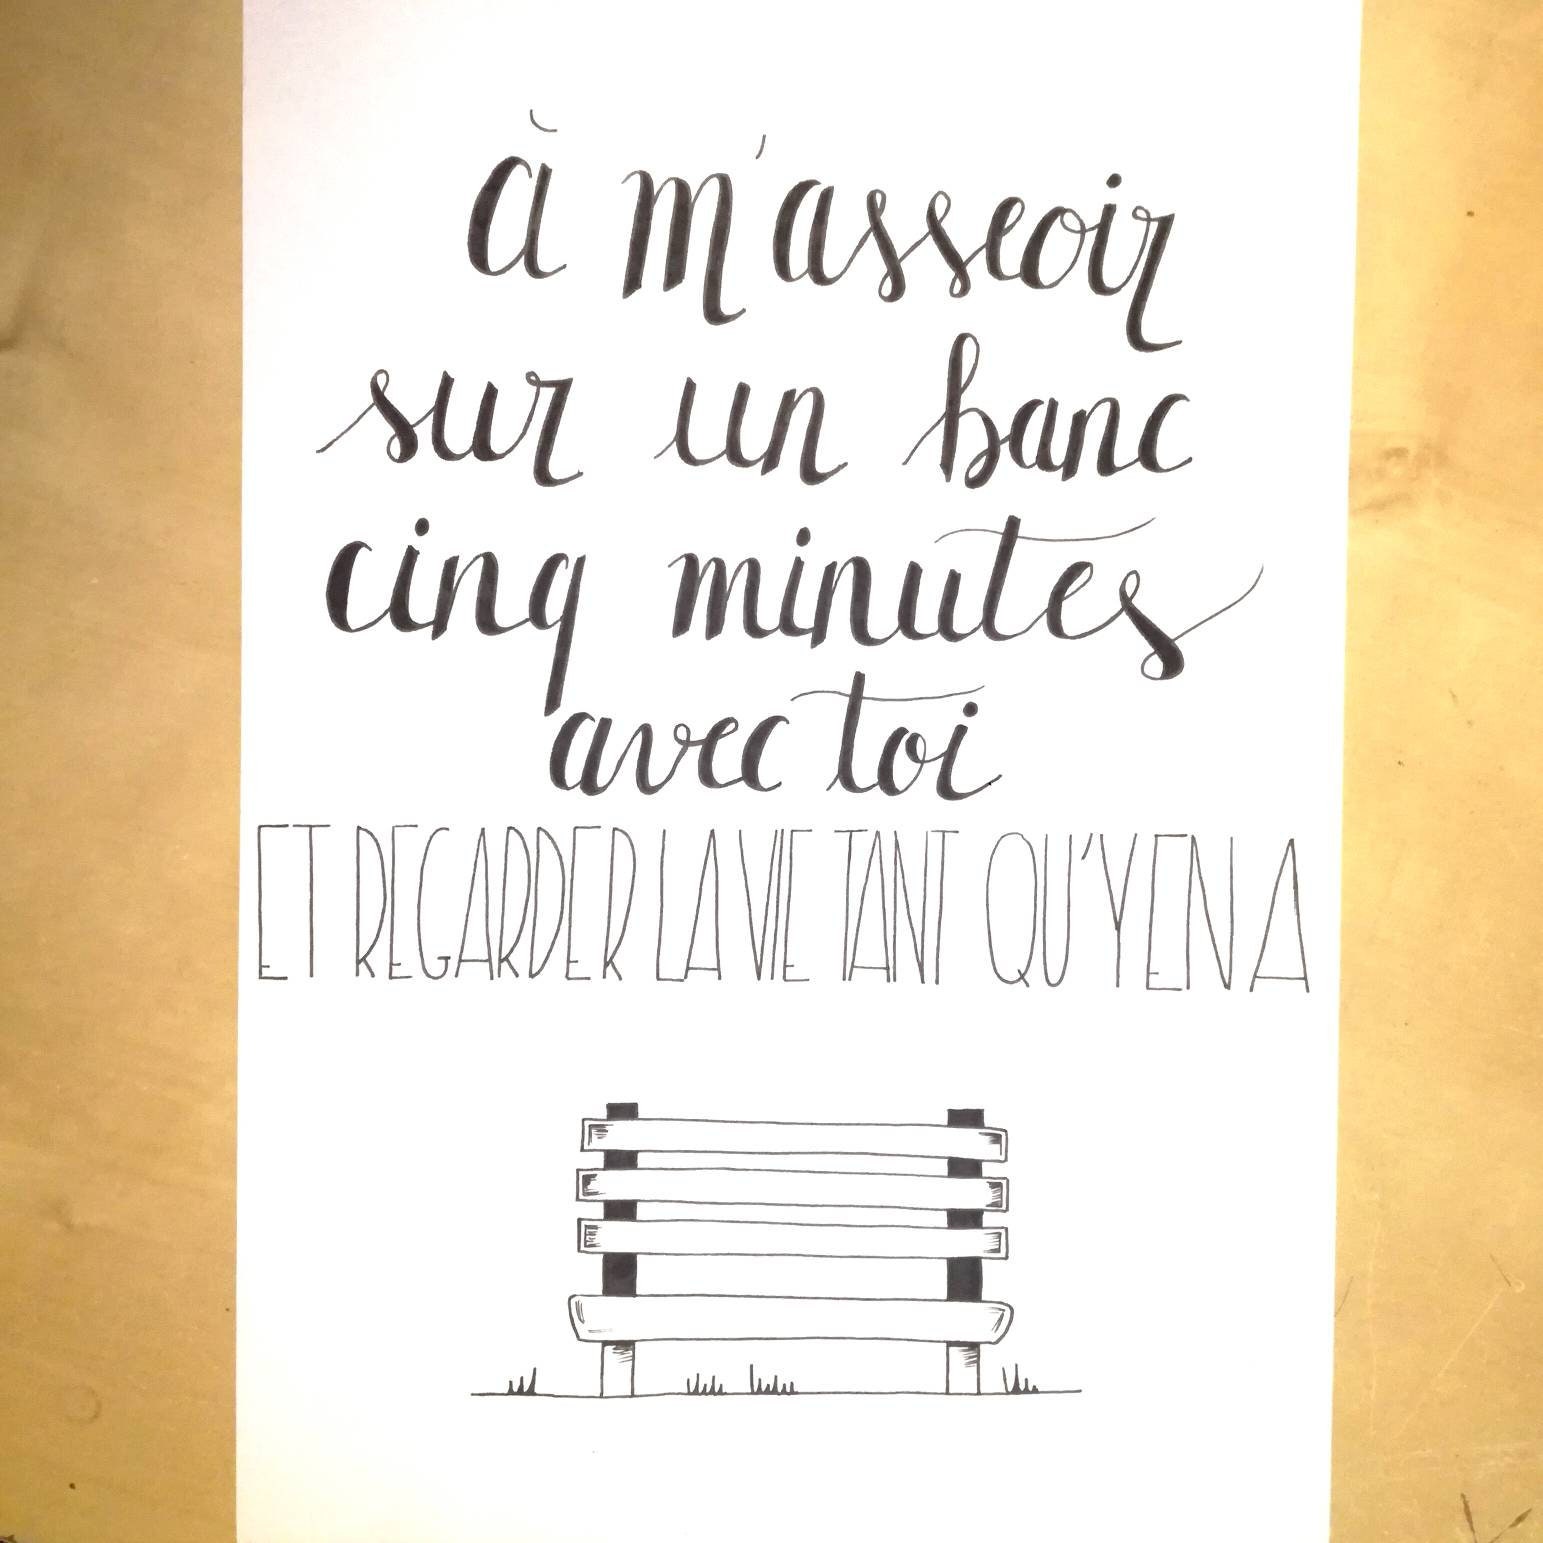 à m'asseoir
sur un banc
cinq minutes
avec toi
ET REGARDER LA VIE TANT QU'Y EN A